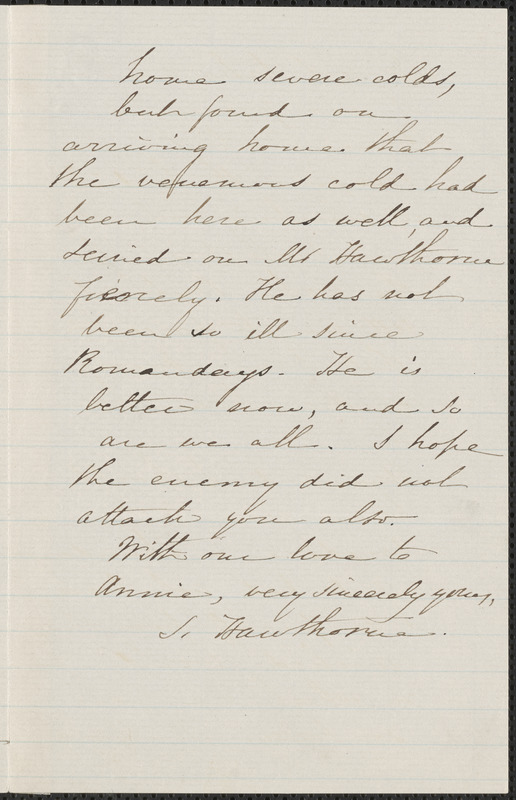 home severe colds,
but found on
arriving home that
the venemous cold had
been here as well, and
seized on Mr Hawthorne
fiercely. He has not
been so ill since
Roman days. He is
better now, and so
are we all. I hope
the enemy did not
attack you also.
With our love to
Annie, very sincerely yours,
S. Hawthorne.